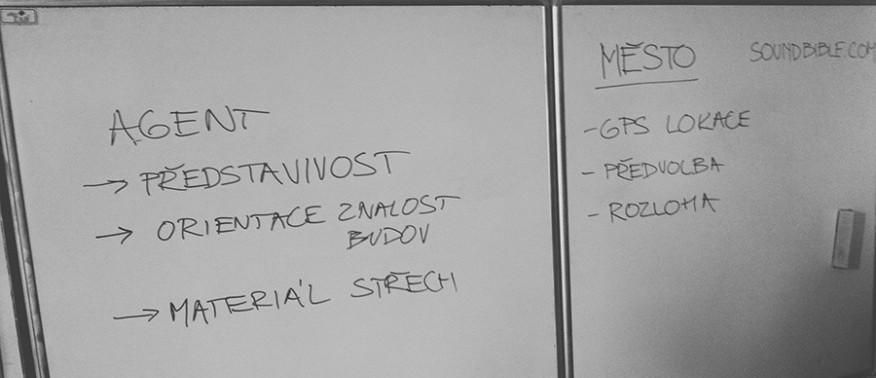 AGENT
→ PŘEDSTAVIVOST
→ ORIENTACE ZNALOST
BUDOV
→ MATERIÁL STŘECH
MĚSTO SOUNDBIBLE.COM
- GPS LOKACE
- PŘEDVOLBA
- ROZLOHA